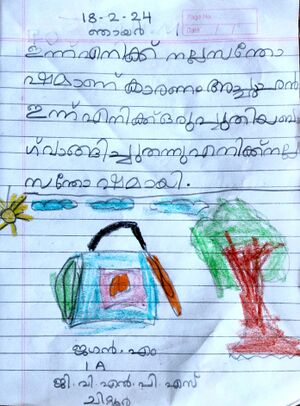 Page No.
Date
18-2-24
ഞായർ
ഇന്ന് എനിക്ക് നല്ല സന്തോ
ഷമാണ് കാരണം അച്ഛൻ
ഇന്ന് എനിക്ക് ഒരു പുതിയ ബാ
ഗ് വാങ്ങിച്ചു തന്നു എനിക്ക് നല്ല
സന്തോഷമായി.
ജഗൻ.എം
1A
ജി.വി.എൻ.പി.എസ്
ചിറ്റൂർ